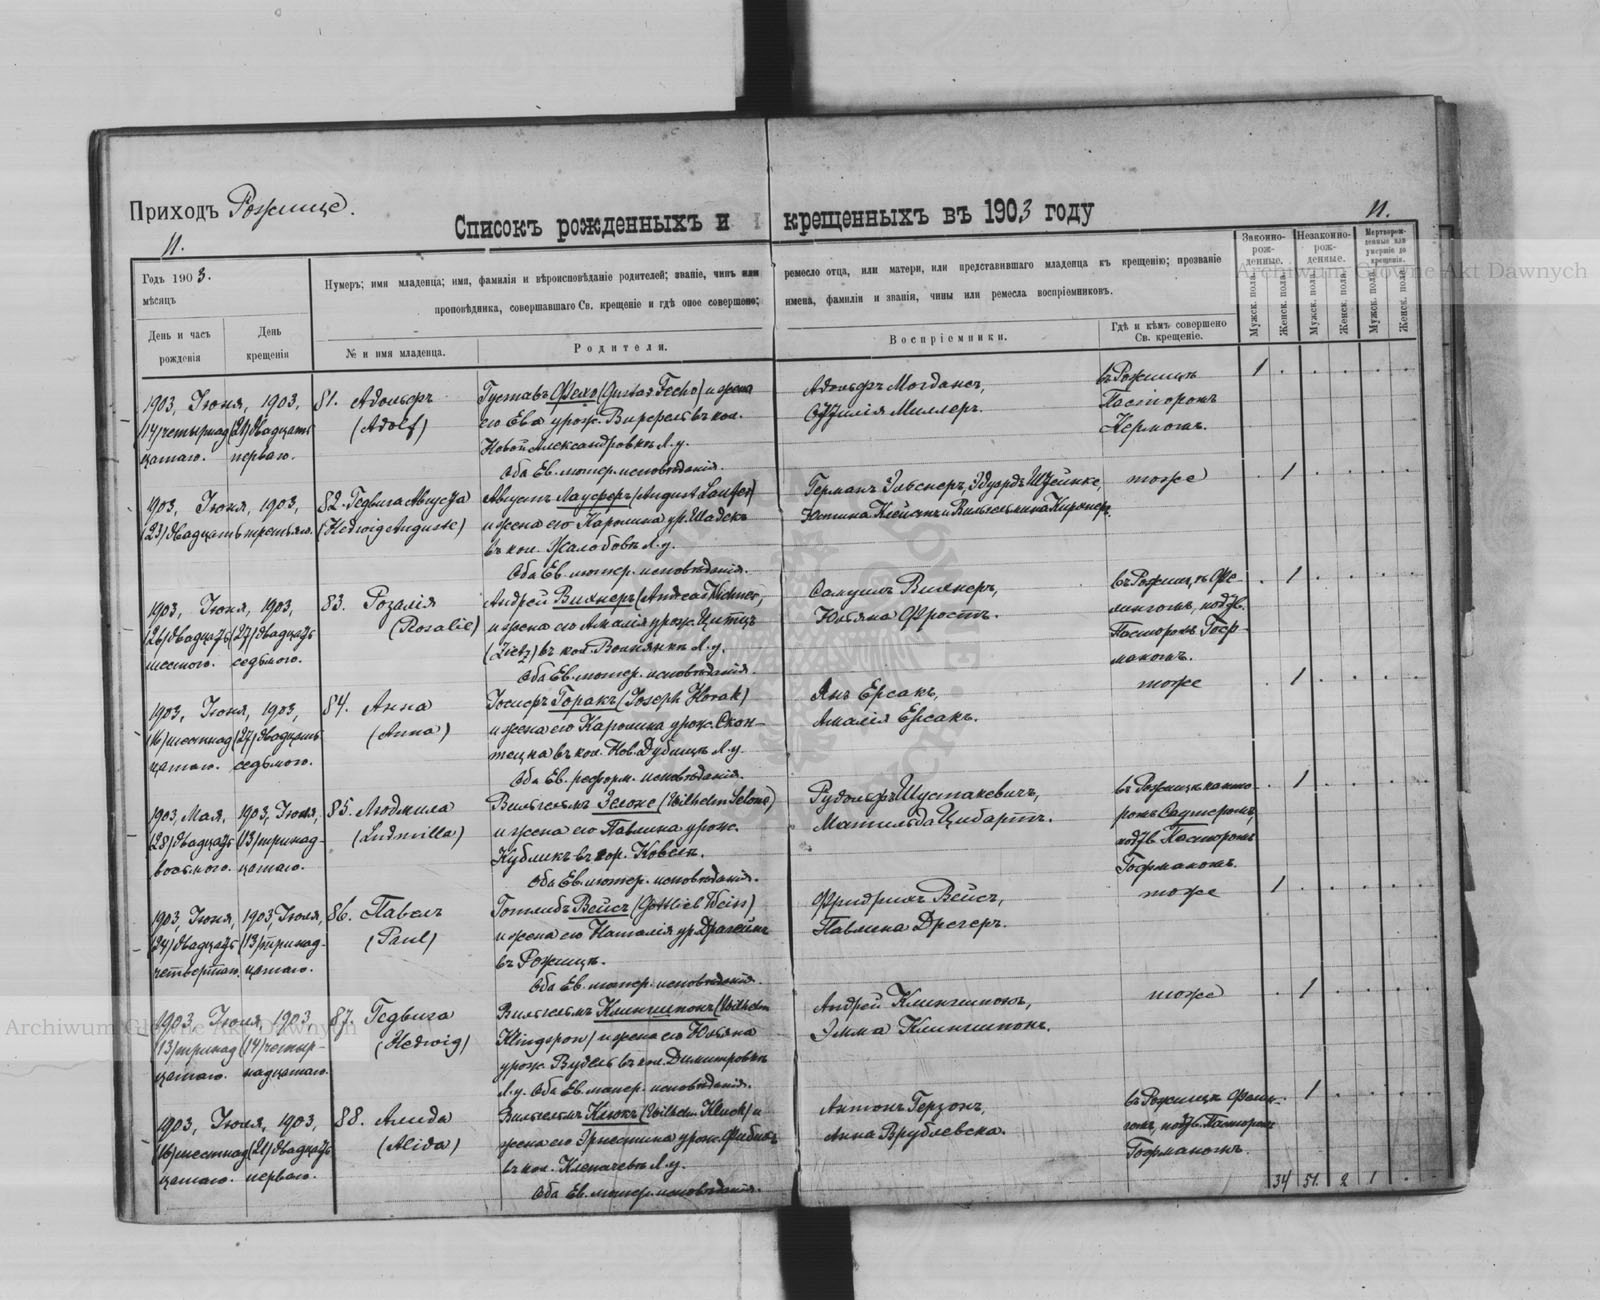 Приходъ Рожище.
Списокъ рожденныхъ и крещенныхъ въ 1903 году
11.
11.
Годъ 1903.
мѣсяцъ
День и часъ рожденія
День крещенія
Нумеръ; имя младенца; имя, фамилія и вѣроисповѣданіе родителей; званіе, чинъ или ремесло отца, или матери, или представившаго младенца къ крещенію; прозваніе
проповѣдника, совершавшаго Св. крещеніе и гдѣ оное совершено; имена, фамиліи и званія, чины или ремесла воспріемниковъ.
№ и имя младенца.
Родители.
Воспріемники.
Гдѣ и кѣмъ совершено Св. крещеніе.
Законно-рожденные.
Незаконно-рожденные.
Мертворожденные или умершіе до крещенія.
Мужск. пола.
Женск. пола.
Мужск. пола.
Женск. пола.
Мужск. пола.
Женск. пола.
Archiwum Główne Akt Dawnych
1903, Іюня, 1903,
(14) четырнад- (21) двадцать
цатаго. перваго.
81. Адольфъ
(Adolf)
Густавъ Фехо (Gustav Fecho) и жена
его Ева урож. въ кол.
Новой Александровкѣ Л.у.
Оба Ев. лютер. исповѣданія.
Адольфъ Могдансъ,
Миллеръ.
въ Рожищѣ
Пасторомъ
Кермомъ.
1
1903, Іюня, 1903,
(23) двадцать третьяго.
82. Гедвига Августа
(Hedwig Auguste)
Августъ Лауферъ (August Laufer)
и жена его Каролина ур. Шадекъ
въ кол. Жалобовкѣ Л.у.
Оба Ев. лютер. исповѣданія.
Германъ Эльснеръ, Эдуардъ
Юстина и Вильгельмина Киршнеръ.
тоже
1
1903, Іюня, 1903,
(26) двадцать (27) двадцать
шестого. седьмого.
83. Розалія
(Rosalie)
Андрей Вихнеръ (Andreas Wichner)
и жена его Амалія урож. Цитцъ
(Zietz) въ кол. Волнянкѣ Л.у.
Оба Ев. лютер. исповѣданія.
Самуилъ Вихнеръ,
Юльяна Фростъ.
въ Рожищѣ Фе-
лингомъ, подтв.
Пасторомъ Гоф-
маномъ.
1
1903, Іюня, 1903,
(16) шестнад- (27) двадцать
цатаго. седьмого.
84. Анна
(Anna)
Іосифъ Горакъ (Joseph Horak)
и жена его Каролина урож. Скон-
тецка въ кол. Нов. Дубищѣ Л.у.
Оба Ев. реформ. исповѣданія.
Янъ Ерсакъ,
Амалія Ерсакъ.
тоже
1
1903, Мая, 1903, Іюля,
(28) двадцать (13) тринад-
восьмого. цатаго.
85. Людмила
(Ludmilla)
Вильгельмъ Зелоне (Wilhelm Selone)
и жена его Павлина урож.
Кубликъ въ гор. Ковелѣ.
Оба Ев. лютер. исповѣданія.
Рудольфъ Шустакевичъ,
Матильда Цибартъ.
въ Рожищѣ канто-
ромъ
подтв. Пасторомъ
Гофманомъ.
1
1903, Іюня, 1903, Іюля,
(24) двадцать (13) тринад-
четвертаго. цатаго.
86. Павелъ
(Paul)
Готлибъ Вейсъ (Gottlieb Weiss)
и жена его Наталія ур. Драгеймъ
въ Рожищѣ.
Оба Ев. лютер. исповѣданія.
Фридрихъ Вейсъ,
Павлина Дрегеръ.
тоже
1
1903, Іюля, 1903,
(13) тринад- (14) четыр-
цатаго. надцатаго.
87. Гедвига
(Hedwig)
Вильгельмъ Клингшпонъ (Wilhelm
Klingspon) и жена его Юльяна
урож. Вудель въ кол. Димитровкѣ
Л.у. Оба Ев. лютер. исповѣданія.
Андрей Клингшпонъ,
Эмма Клингшпонъ.
тоже
1
Archiwum Główne Akt Dawnych
1903, Іюля, 1903,
(16) шестнад- (21) двадцать
цатаго. перваго.
88. Алида
(Alida)
Вильгельмъ Клюкъ (Wilhelm Kluck) и
жена его Эрнестина урож. Фибихъ
въ кол. Клепачевѣ Л.у.
Оба Ев. лютер. исповѣданія.
Антонъ Герцонъ,
Анна Врублевска.
въ Рожищѣ Фелин-
гомъ, подтв. Пасторомъ
Гофманомъ.
1
34 51. 2 1